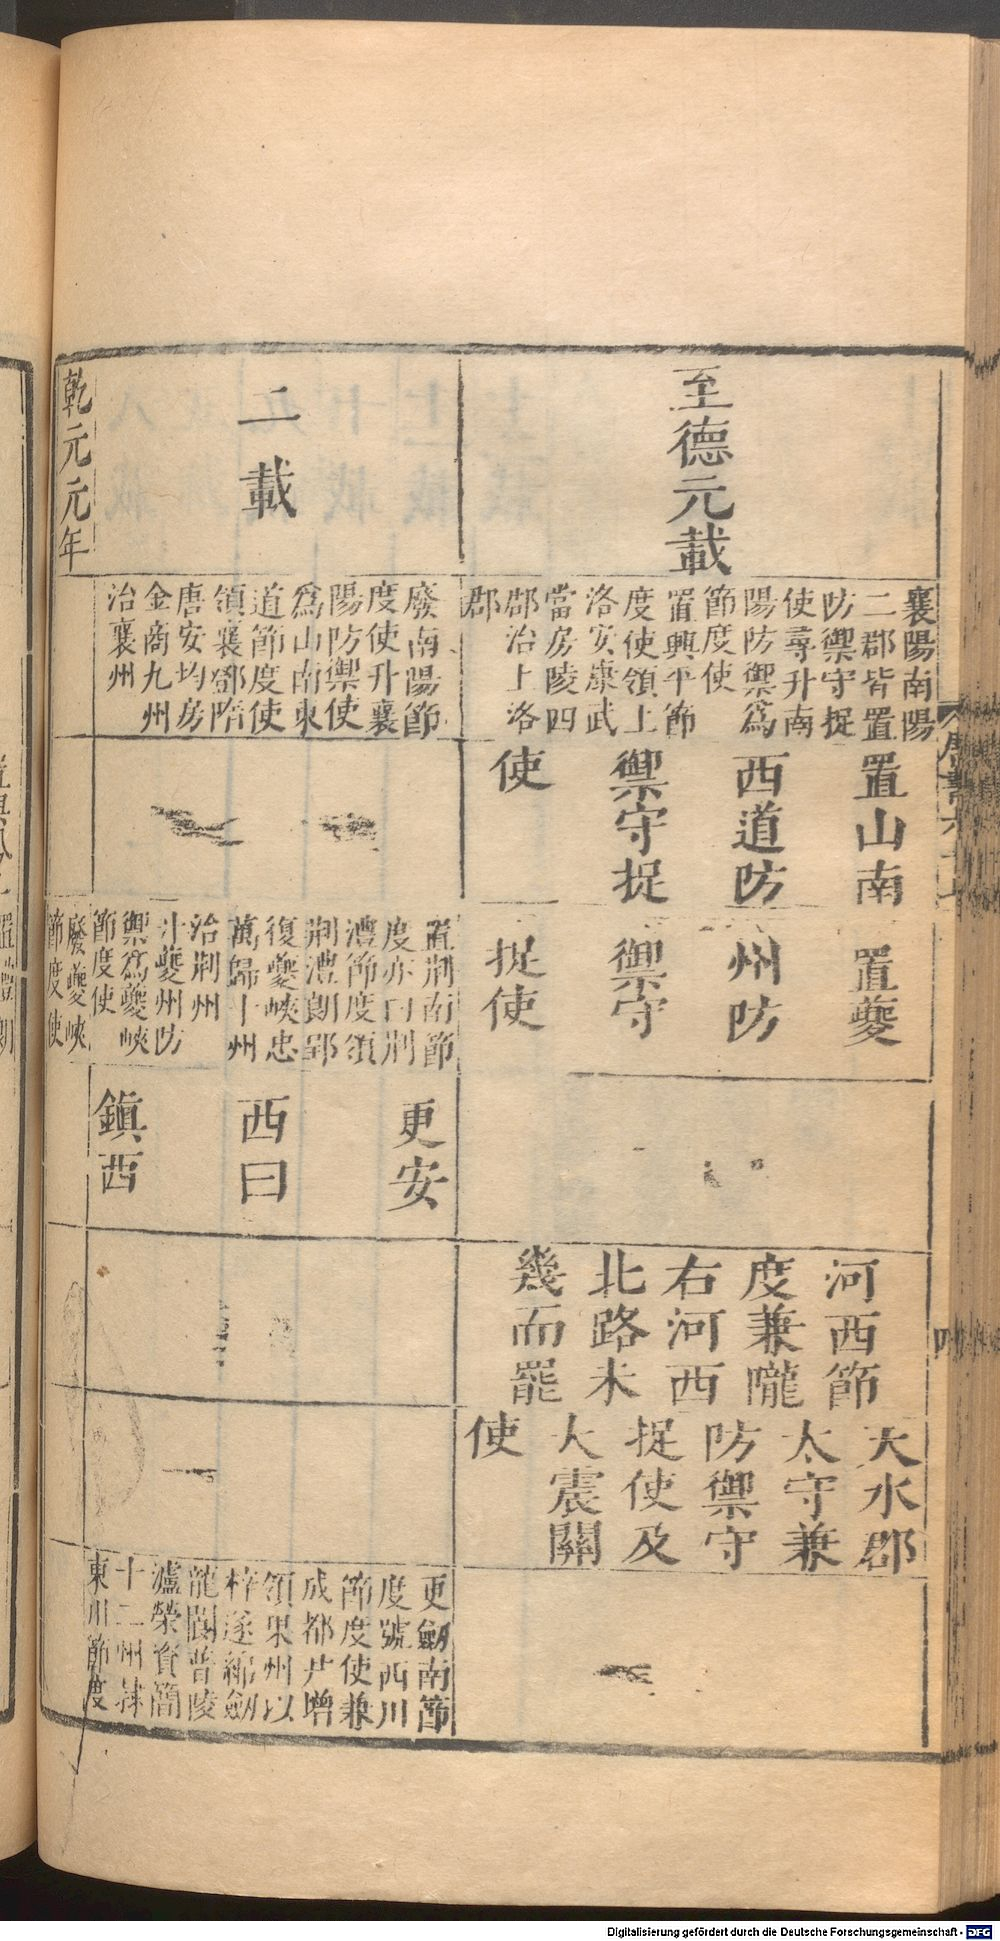 至德元載
襄陽南陽
二郡皆置
防禦守捉
使尋升南
陽防禦爲
節度使
置興平節
度使領上
洛安康武
當房陵四
郡治上洛
郡
置山南
西道防
禦守捉
使
置夔
州防
禦守
捉使
河西節
度兼隴
右河西
北路未
幾而罷
天水郡
太守兼
防禦守
捉使及
大震關
使
二載
廢南陽節
度使升襄
陽防禦使
爲山南東
道節度使
領襄鄧隋
唐安均房
金商九州
治襄州
置荆南節
度亦曰荆
澧節度領
荆澧朗郢
復夔峽忠
萬歸十州
治荆州
升夔州防
禦爲夔峽
節度使
更安
西曰
鎮西
更劒南節
度號西川
節度使兼
成都尹增
領果州以
梓遂綿劒
龍閬普陵
瀘榮資簡
十二州隷
東川節度
乾元元年
廢夔峽
節度使
Digitalisierung gefördert durch die Deutsche Forschungsgemeinschaft - DFG